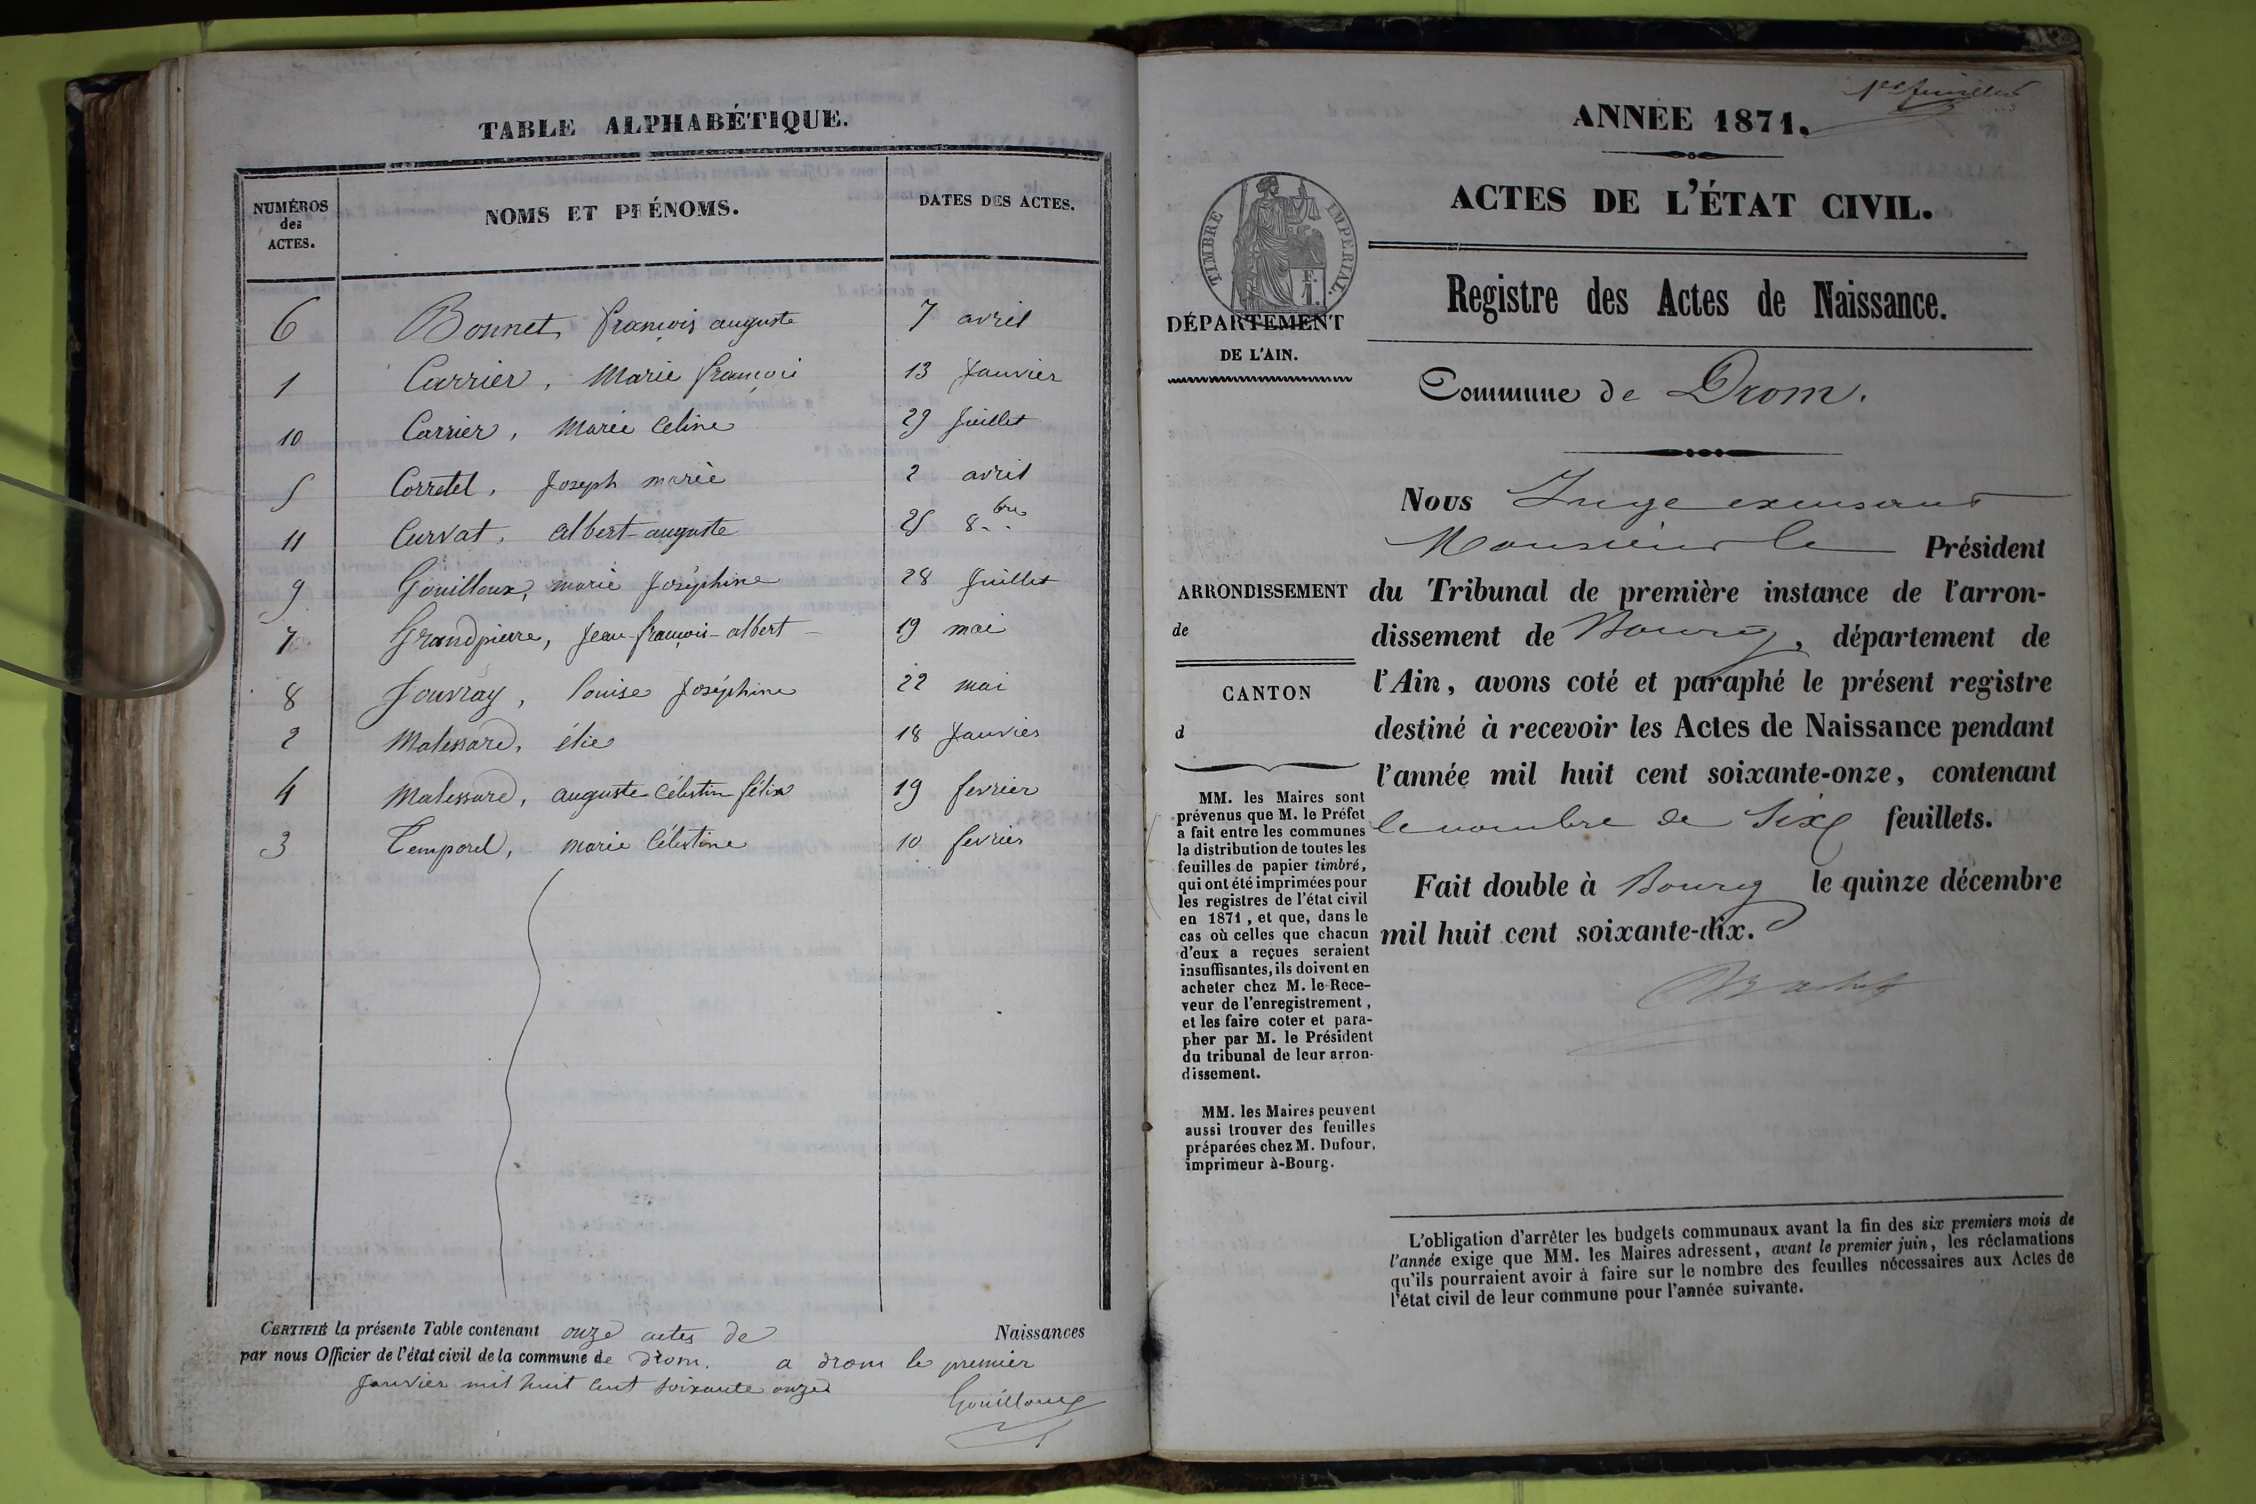 TABLE ALPHABÉTIQUE.
NUMÉROS des ACTES.
NOMS ET PRÉNOMS.
DATES DES ACTES.
6 Bonnet, françois auguste 7 avril
1 Carrier, Marie françois 13 Janvier
10 Carrier, Marie Celine 29 Juillet
5 Corretel, Joseph marie 2 avril
11 Curvat, albert-auguste 25 8bre
9 Gouilloux, marie Joséphine 28 Juillet
7 Grandpierre, Jean-françois-albert 19 mai
8 Jouvray, louise Joséphine 22 mai
2 Malessard, élie 18 Janvier
4 Malessard, auguste Célestin félix 19 fevrier
3 Temporel, marie Célestine 10 fevrier
CERTIFIÉ la présente Table contenant onze actes de Naissances
par nous Officier de l'état civil de la commune de drom. a drom le premier
Janvier mil huit cent soixante onze
Gouilloux
1er feuillet
ANNÉE 1871.
ACTES DE L'ÉTAT CIVIL.
TIMBRE IMPÉRIAL.
F.
1.
Registre des Actes de Naissance.
DÉPARTEMENT
DE L'AIN.
Commune de Drom.
Nous Juge excusant
Monsieur le Président
du Tribunal de première instance de l'arron-
dissement de Bourg, département de
l'Ain, avons coté et paraphé le présent registre
destiné à recevoir les Actes de Naissance pendant
l'année mil huit cent soixante-onze, contenant
le nombre de Six feuillets.
Fait double à Bourg le quinze décembre
mil huit cent soixante-dix.
ARRONDISSEMENT
de
CANTON
d
MM. les Maires sont
prévenus que M. le Préfet
a fait entre les communes
la distribution de toutes les
feuilles de papier timbré,
qui ont été imprimées pour
les registres de l'état civil
en 1871, et que, dans le
cas où celles que chacun
d'eux a reçues seraient
insuffisantes, ils doivent en
acheter chez M. le Rece-
veur de l'enregistrement,
et les faire coter et para-
pher par M. le Président
du tribunal de leur arron-
dissement.
MM. les Maires peuvent
aussi trouver des feuilles
préparées chez M. Dufour,
imprimeur à-Bourg.
L'obligation d'arrêter les budgets communaux avant la fin des six premiers mois de
l'année exige que MM. les Maires adressent, avant le premier juin, les réclamations
qu'ils pourraient avoir à faire sur le nombre des feuilles nécessaires aux Actes de
l'état civil de leur commune pour l'année suivante.